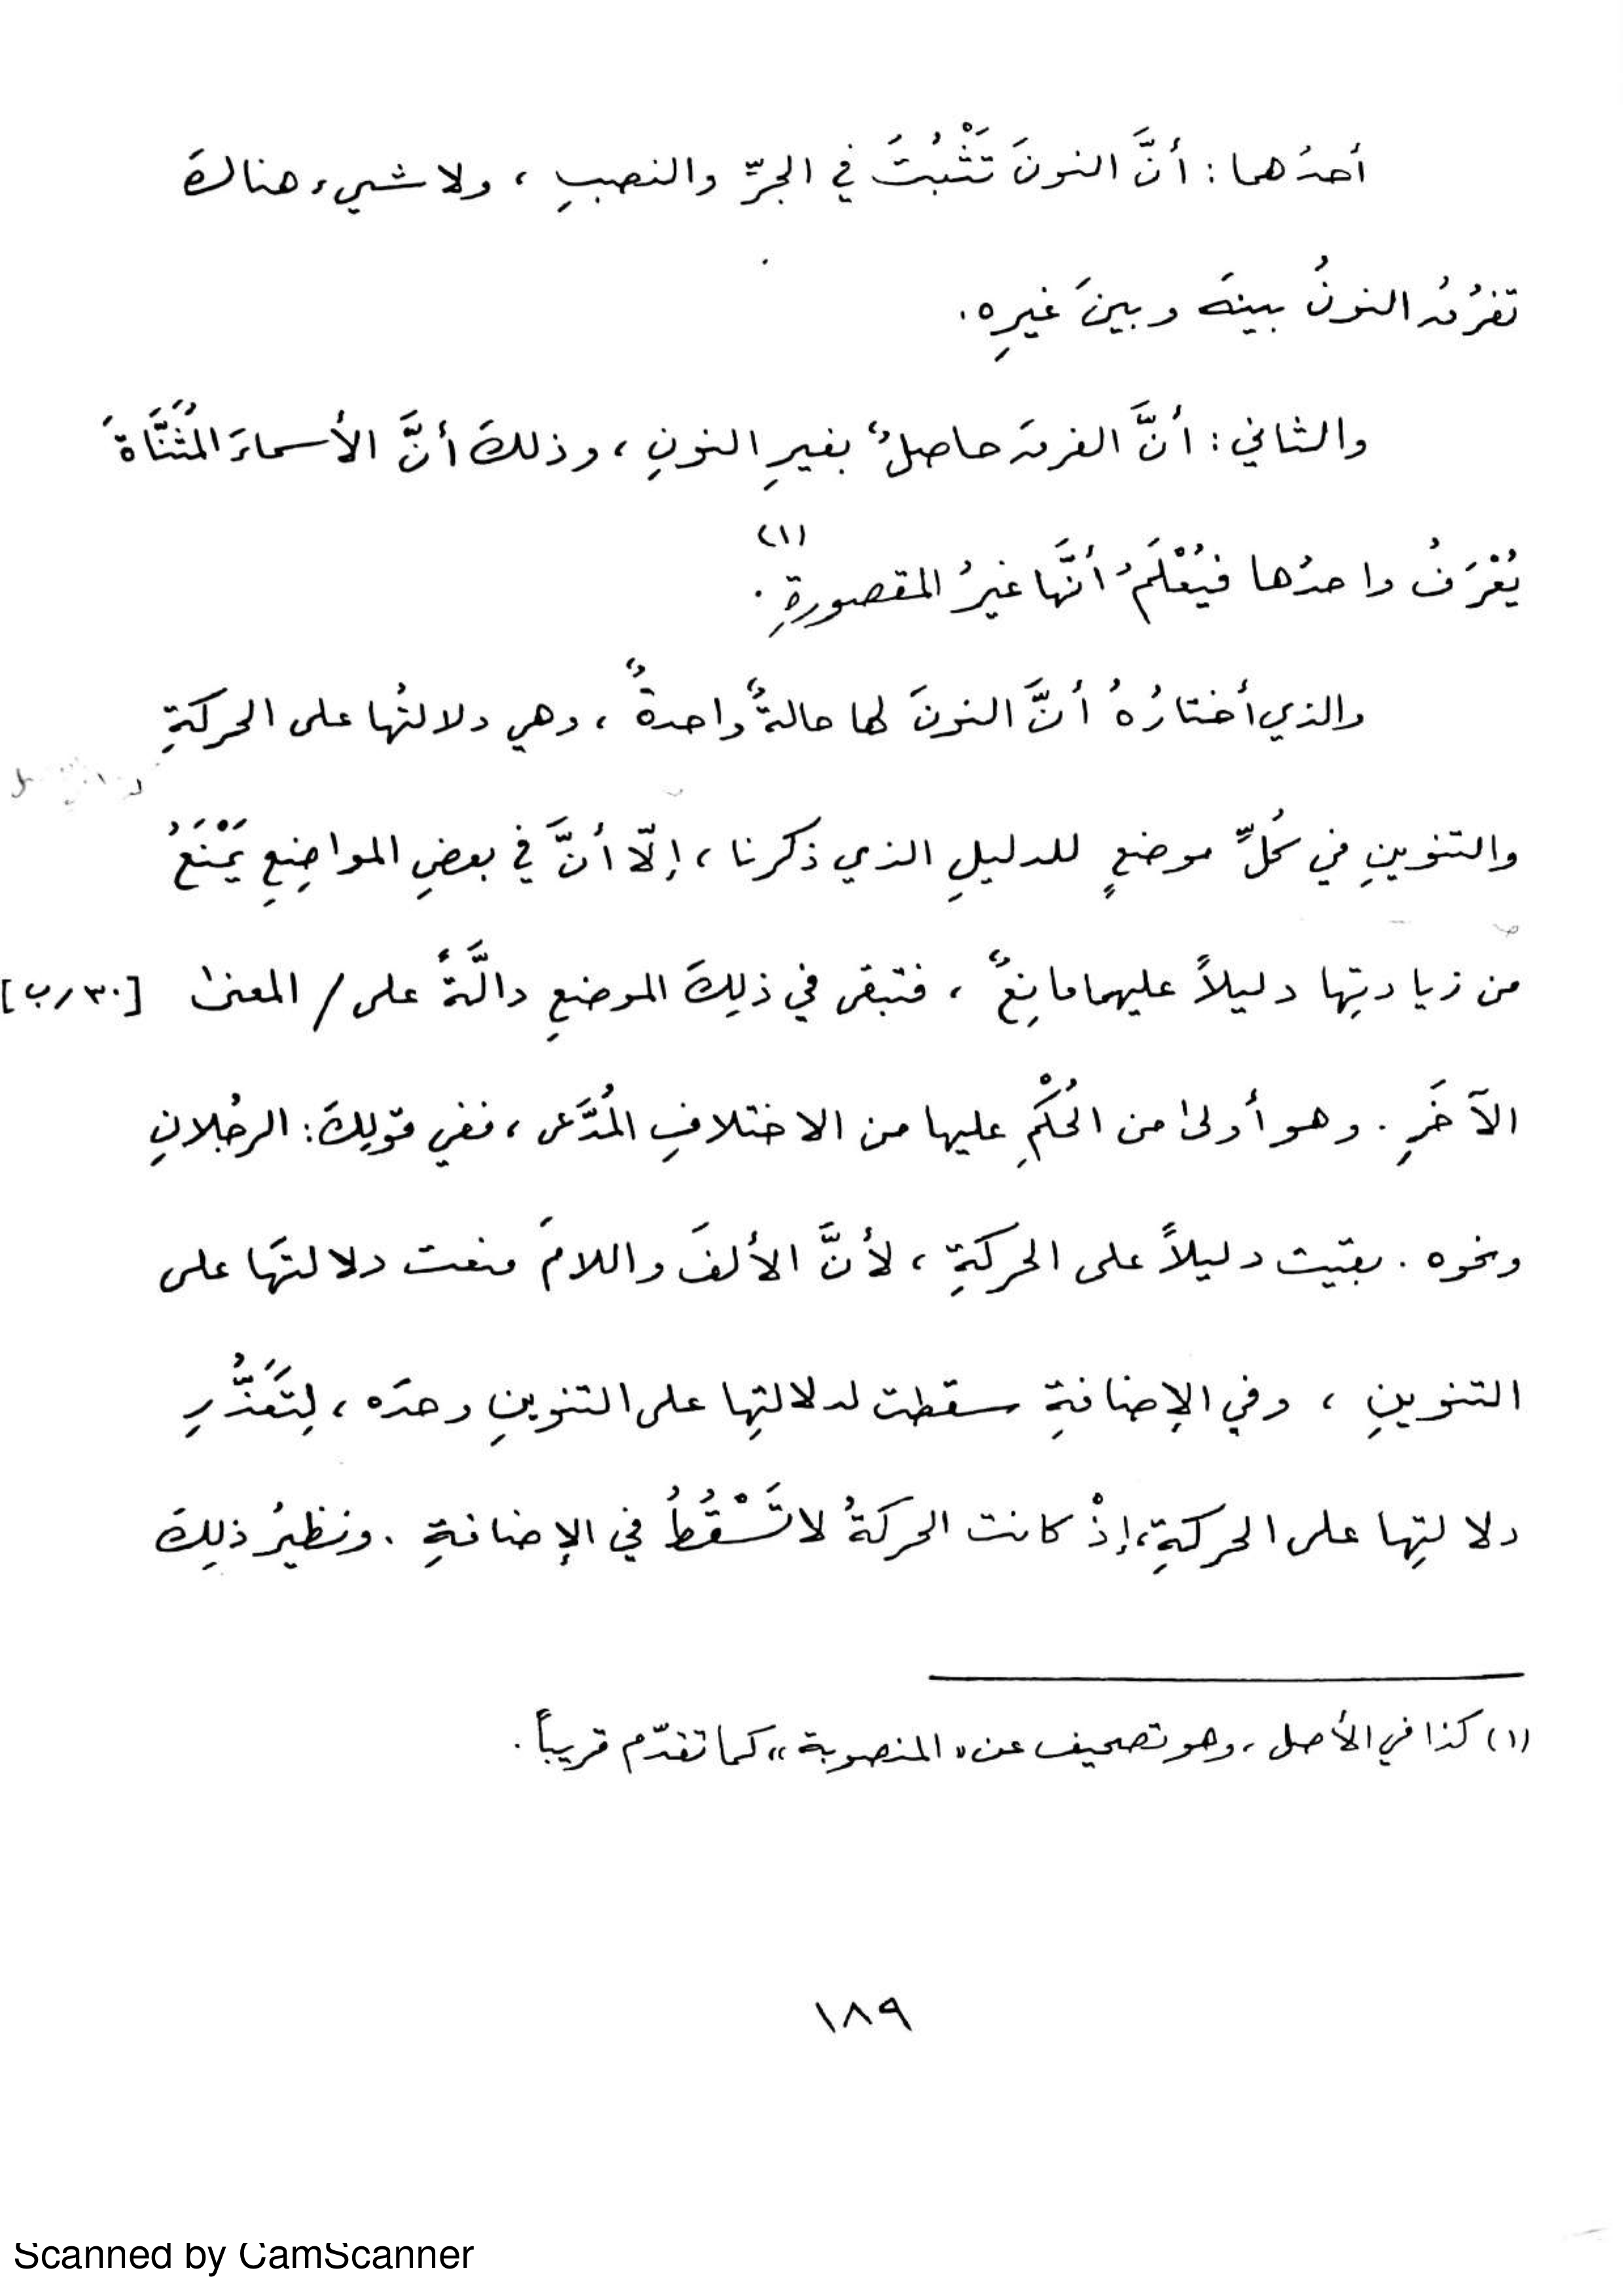 أحدُهما : أنَّ النونَ تَثْبُتُ في الجرِّ والنصبِ ، ولا شيء هنالكَ
تفرُقُ النونُ بينهَ وبينَ غيرِه .
والثاني : أنَّ الفرقَ حاصلٌ بغيرِ النونِ ، وذلكَ أنَّ الأسماءَ المُثَنَّاةَ
يُعْرَفُ واحدُها فيُعْلَمُ أنَّها غيرُ المقصورةِ (١) .
والذي أختارُهُ أنَّ النونَ لها حالةٌ واحدةٌ ، وهي دلالتُها على الحركةِ
والتنوينِ في كُلِّ موضعٍ للدليلِ الذي ذكرنا ، إلّا أنَّ في بعضِ المواضِعِ يَمْنَعُ
من زيادتِها دليلاً عليهما مانِعٌ ، فتبقى في ذلِكَ الموضعِ دالَّةً على / المعنىٰ [٣٠/ب]
الآخَرِ . وهو أولىٰ من الحُكْمِ عليها من الاختلافِ المُدَّعى ، ففي قولِكَ : الرجُلانِ
ونحوه . بقيت دليلاً على الحركةِ ، لأنَّ الألفَ واللامَ منعت دلالتَها على
التنوينِ ، وفي الإضافةِ سقطت لدلالتِها على التنوينِ وحدَه ، لِتَعَذُّرِ
دلالتِها على الحركةِ ، إذْ كانت الحركةُ لا تَسْقُطُ في الإضافةِ . ونظيرُ ذلِكَ
(١) كذا في الأصل ، وهو تصحيف عن « المنصوبة » كما تقدّم قريباً .
١٨٩
Scanned by CamScanner